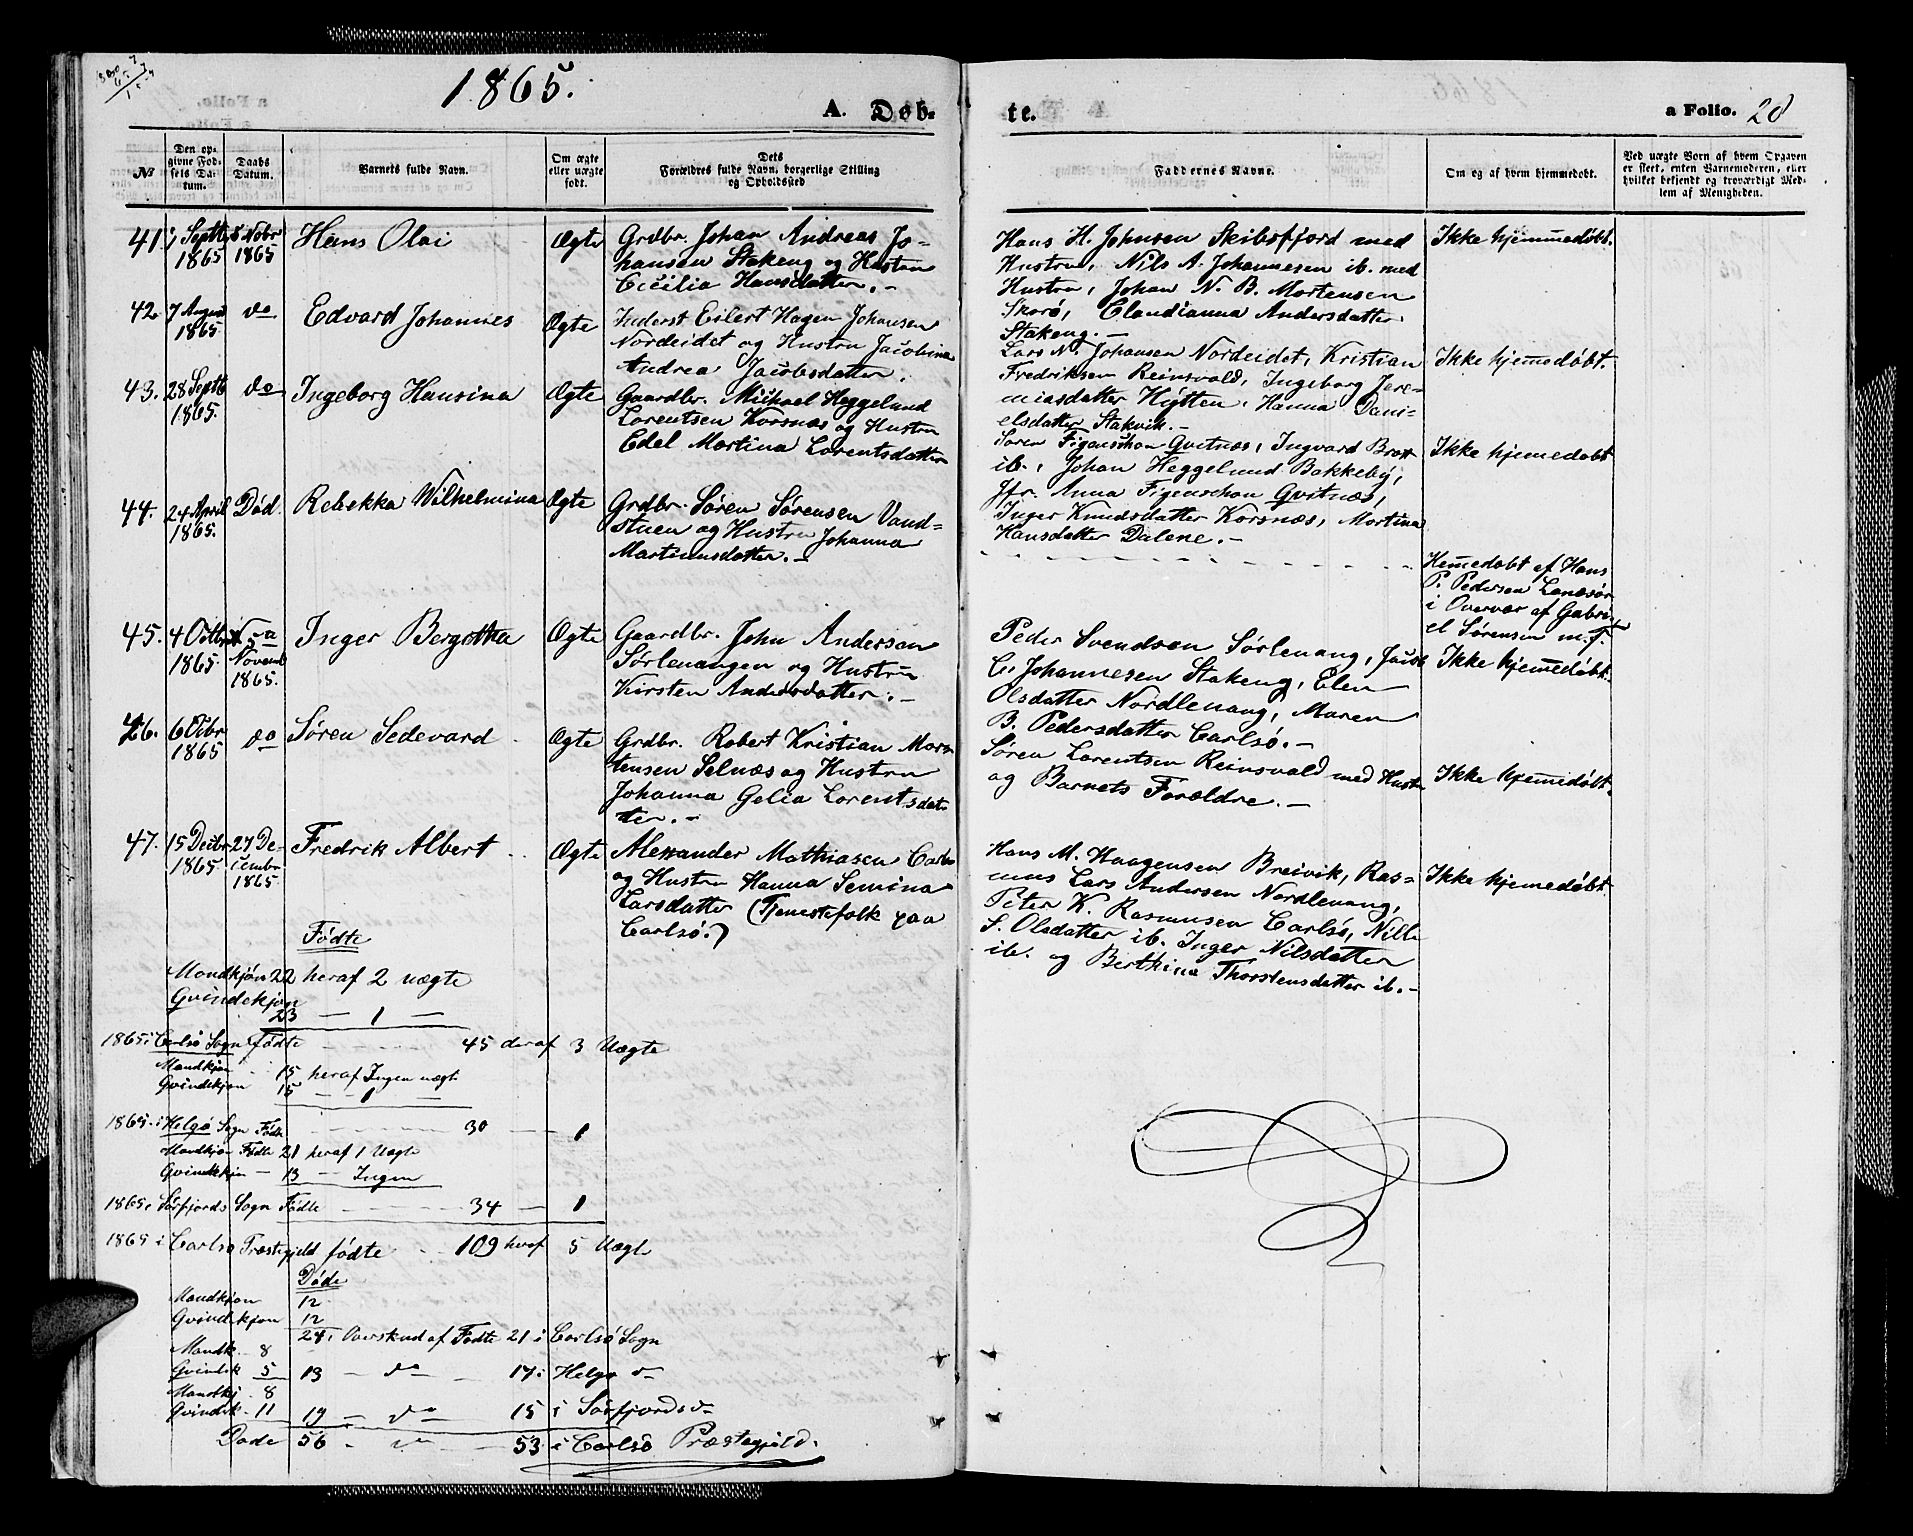 1865.
A. Døb-
No
Den op-
givne Fød-
sels Da-
tum.
Daabs
Datum.
Barnets fulde Navn.
Om ægte
eller uægte
født.
Dets
Forældres fulde Navn, borgerlige Stilling
og Opholdssted
41.
Septbr
1865
5 Novbr
1865
Hans Olai
Ægte
Grdbr. Johan Andreas Jo-
hansen Stakeng og Hustru
Cicilia Hansdatter. -
42.
7 August
1865.
do
Edvard Johannes
Ægte
Inderst Eilert Hagen Johansen
Nordeidet og Hustru Jacobina
Andrea Jacobsdatter.
43.
28 Septb
1865.
do
Ingeborg Hansina
Ægte
Gaardbr. Michael Heggelund
Lorentsen Korsnæs og Hustru
Edel Martina Lorentsdatter
44.
24 April
1865.
Død.
Rebekka Wilhelmina
Ægte
Grdbr. Søren Sørensen Vand-
stuen og Hustru Johanna
Martinusdatter. -
45.
4 Octbr
1865.
5
Novemb
1865.
Inger Bergitha
Ægte
Gaardbr. John Andersen
Sørlenangen og Hustru
Kirsten Andersdatter. -
46.
6 Octbr
1865
do
Søren Sedevard
Ægte
Grdbr. Robert Kristian Mor-
tensen Selnæs og Hustru
Johanna Gelia Lorentsdat-
ter. -
47.
15 Decbr
1865.
27 De-
cembr
1865.
Fredrik Albert
Ægte
Alexander Mathiasen Carlsø
og Hustru Hanna Semina
Larsdatter (Tjenestefolk paa
Carlsø.)
Fødte
Mandkjøn 22 heraf 2 uægte
Qvindekjøn
23 — 1 —
1865 i Carlsø Sogn fødte - - - 45 deraf 3 Uægte
Mandkjøn - 15 heraf Ingen uægte
Qvindekjøn 15 — 1 —
1865 i Helgø Sogn Fødte - - - 30 — 1
Mandkjøn Fødte 21 heraf 1 Uægte
Qvindekjøn — 13 — Ingen
1865 i Sørfjords Sogn Fødte - - - 34 — 1
1865 i Carlsø Præstegjeld fødte - - 109 heraf 5 Uægte
Døde
Mandkjøn 12
Qvindekjøn 12
24, Overskud af Fødte 21 i Carlsø Sogn
Mandk. 8
Qvindek 5 13 — do — 17 i Helgø do
Mandkj. 8
Qvindek. 11 19 — do — 15 i Sørfjords do
Døde 56 - do — 53 i Carlsø Præstegjeld.
te.
a Folio. 28
Faddernes Navne.
Om og af hvem hjemmedøbt.
Ved uægte Børn af hvem Opgaven
er skeet, enten Barnemoderen, eller
hvilket bekjendt og troværdigt Med-
lem af Menigheden.
Hans H. Johnsen Skibsfjord med
Hustru, Nils A. Johannesen ib. med
Hustru, Johan N. B. Mortensen
Skorø, Claudianna Andersdatter
Stakeng. -
Ikke hjemmedøbt.
Lars N. Johansen Nordeidet, Kristian
Fredriksen Reinsvold, Ingeborg Jere-
miasdatter Hytten, Hanna Dani-
elsdatter Stakvik. -
Ikke hjemmedøbt.
Søren Figenschou Qvitnæs, Ingvard Brox
ib., Johan Heggelund Bakkeby,
Jfr. Anna Figenschou Qvitnæs,
Inger Knudsdatter Korsnæs, Martina
Hansdatter Dalene. -
Ikke hjemmedøbt
Hjemmedøbt af Hans
P. Pedersen Lanesør
i Overvær af Gabri-
el Sørensen m. f.
Peder Svendsen Sørlenang, Jacob
C. Johannesen Stakeng, Elen
Olsdatter Nordlenang, Maren
B. Pedersdatter Carlsø. -
Ikke hjemmedøbt.
Søren Lorentsen Reinsvold med Hustru
og Barnets Forældre. -
Ikke hjemmedøbt.
Hans M. Haagensen Breivik, Ras-
mus Lars Andersen Nordlenang,
Peter K. Rasmusen Carlsø,
S. Olsdatter ib. Inger Nilsdatter
ib. og Berthine Thorstensdatter ib. -
Ikke hjemmedøbt